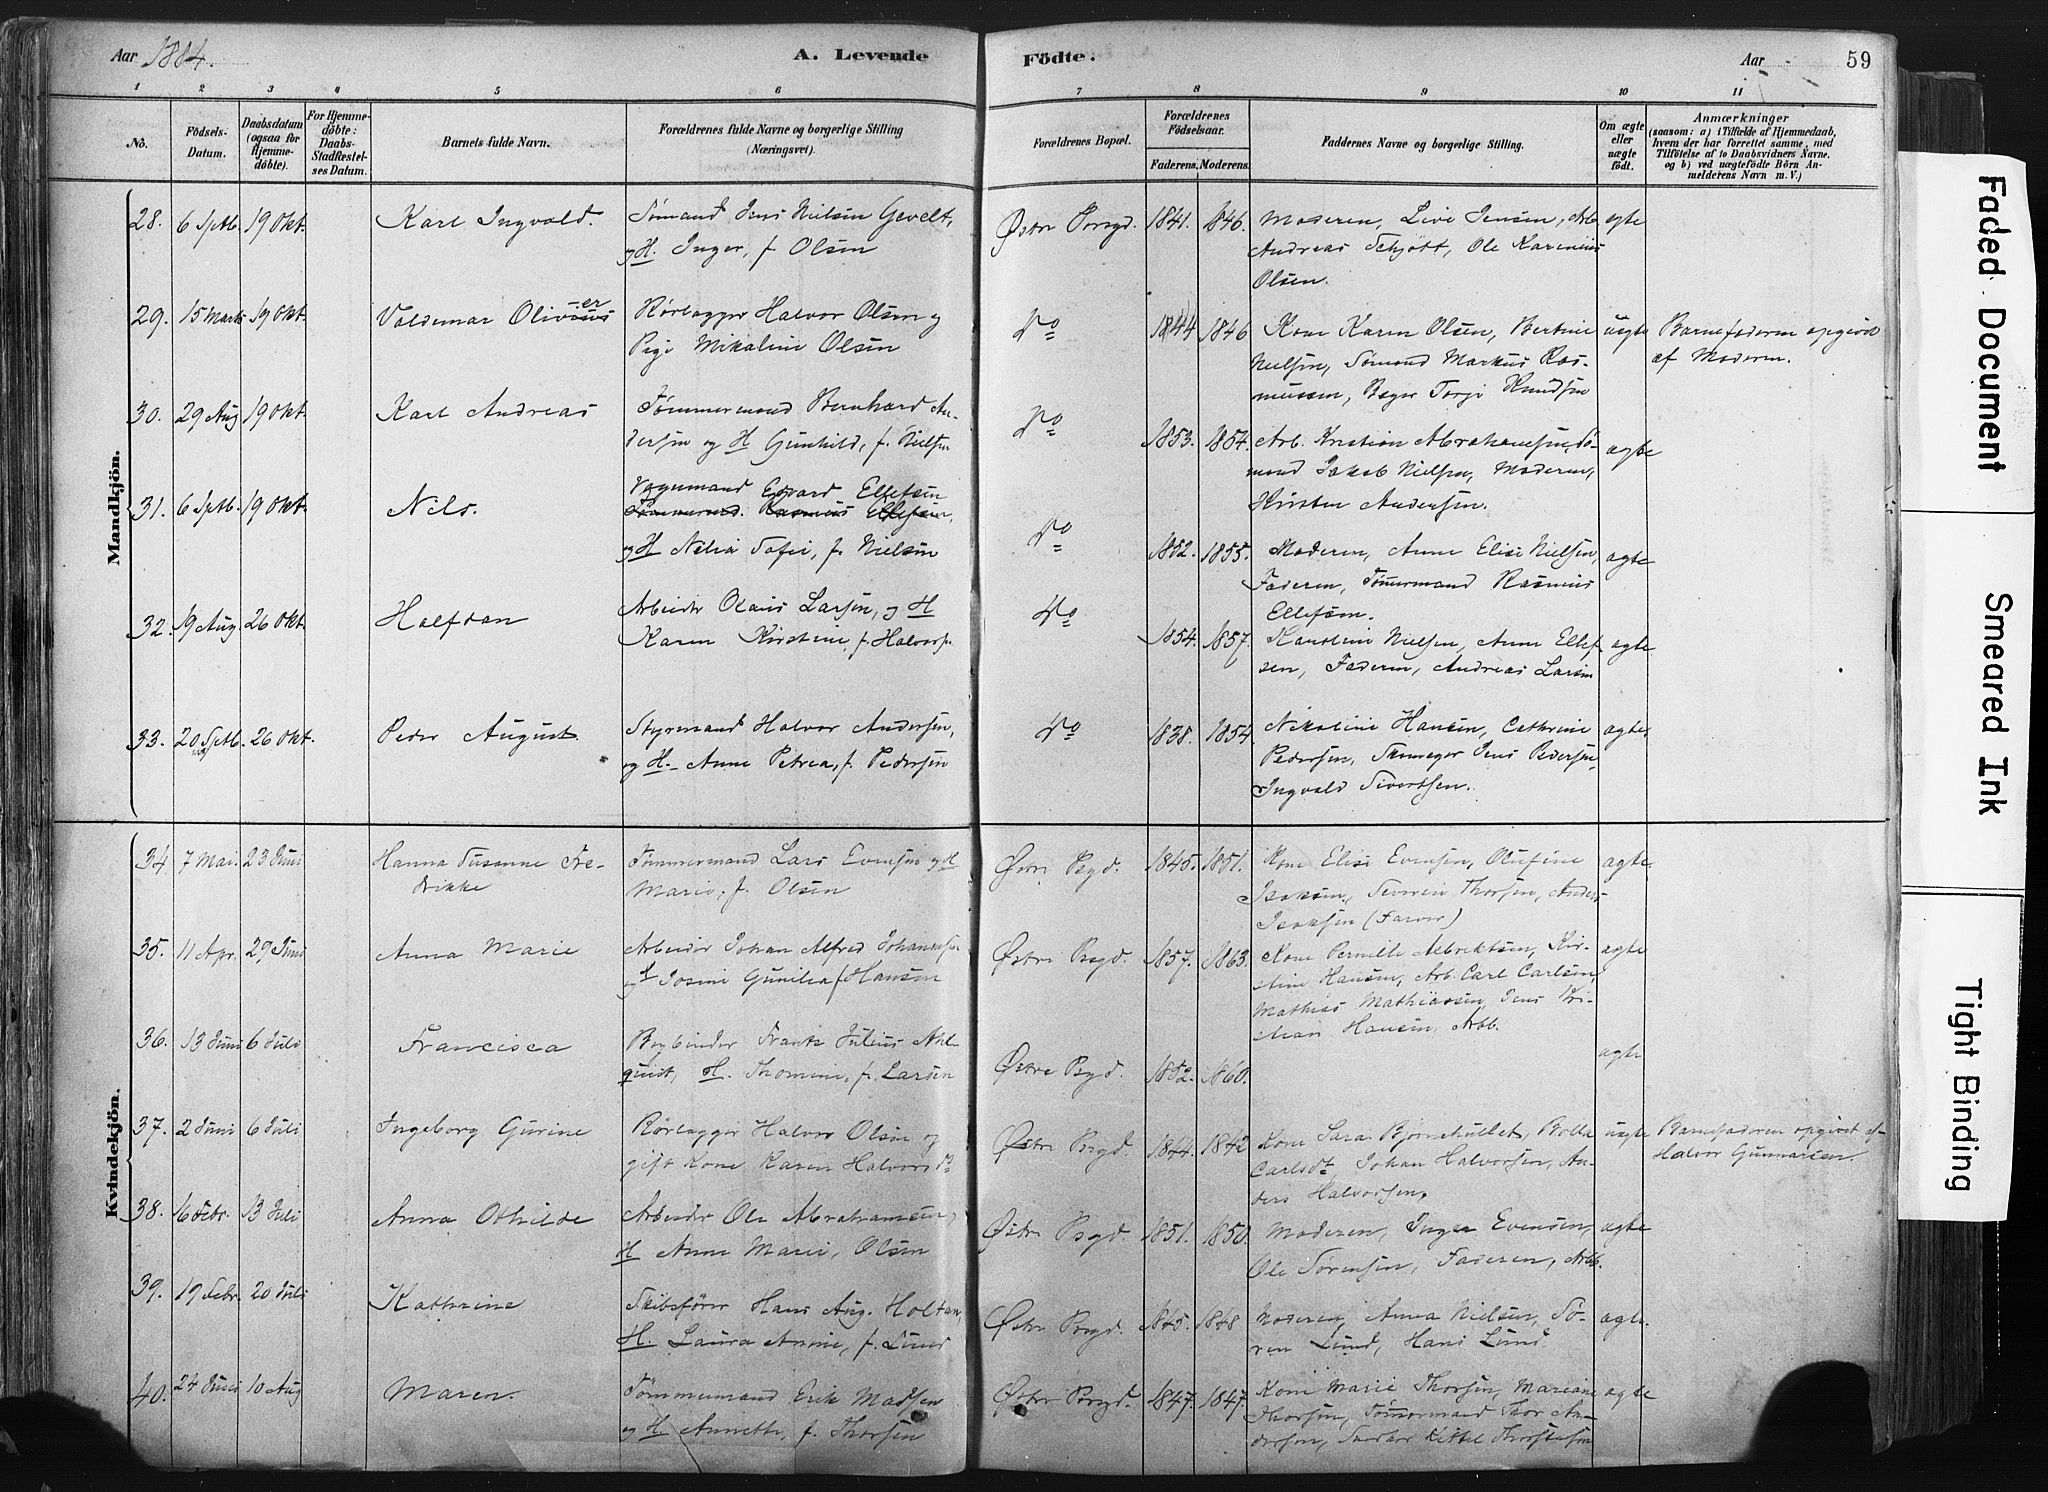 Aar 1884.
A. Levende
Födte.
Aar
59
1 2 3 4 5 6 7 8 9 10 11
No.
Födsels-Datum.
Daabsdatum (ogsaa for Hjemmedöbte).
For Hjemmedöbte: Daabs-Stadfæstelses Datum.
Barnets fulde Navn.
Forældrenes fulde Navne og borgerlige Stilling (Næringsvei).
Forældrenes Bopæl.
Forældrenes Födselsaar.
Faderens. Moderens.
Faddernes Navne og borgerlige Stilling.
Om ægte eller uægte födt.
Anmærkninger
(saasom: a) i Tilfælde af Hjemmedaab, hvem der har forrettet samme, med Tilföielse af to Daabsvidners Navne, og b) ved uægtefödte Börn Anmelderens Navn m. V.)
Mandkjön.
28. 6 Sptb. 19 Okt. Karl Ingvald. Sømand Jens Nielsen Gevelt, og H. Inger, f. Olsen
Østre Porsgd. 1841. 1846. Moderen, Live Jensen, Arb. Andreas Schjøtt, Ole Karenius Olsen. ægte
29. 15 Marts 19 Okt. Valdemar Oliver Rørlægger Halvor Olsen og Pige Mikaline Olsen
do 1844 1846 Kone Karen Olsen, Bertine Nielsen, Sømand Markus Rasmussen, Bager Torje Knudsen uægte Barnefaderen opgivet af Moderen.
30. 29 Aug 19 Okt. Karl Andreas Tømmermand Bernhard Andersen og H Gunhild, f. Nielsen
do 1853. 1854. Arb. Kristian Abrahamsen, Sømand Jakob Nielsen, Moderen, Kirsten Andersen. ægte
31. 6 Sptb. 19 Okt. Nils. Vognmand Edvard Ellefsen Tømmermd. Rasmus Ellefsen, og H Nilia Sofie, f. Nielsen
do 1852. 1855. Moderen, Anne Elise Nielsen, Faderen, Tømmermand Rasmus Ellefsen. ægte
32. 19 Aug. 26 Okt. Halfdan Arbeider Olaus Larsen, og H Karen Kirstine, f. Halvorsen
do 1854. 1857. Karoline Nielsen, Anne Ellefsen, Faderen, Andreas Larsen ægte
33. 20 Sptb. 26 Okt. Peder August Styrmand Halvor Andersen, og H. Anne Petrea, f. Pedersen
do 1838. 1854. Nikoline Hansen, Cathrine Pedersen, Jens Pedersen, Ingvald Sivertsen. ægte
Kvindekjön.
34. 7 Mai. 23 Juni Hanna Susanne Fredrikke Tømmermand Lars Evensen og H Marie, f. Olsen
Østre Psgd. 1845. 1851. Kone Elise Evensen, Olufine Isaksen, Severin Thorsen, Anders Isaksen (Farver) ægte
35. 11 Apr. 29 Juni Anna Marie Arbeider Johan Alfred Johannesen og H Josine Gunilia f Hansen
Østre Psgd. 1857. 1863. Kone Pernille Albrektsen, Kirstine Hansen, Arb. Carl Carlsen, Mathias Mathiassen, Jens Kristian Hansen, Arb. ægte
36. 13 Juni 6 Juli Francisca Bogbinder Frantz Julius Ahlquist, H. Thomine, f. Larsen
Østre Psgd. 1852. 1860. ægte
37. 2 Juni 6 Juli Ingeborg Gurine Rørlægger Halvor Olsen og gift Kone Karen Halvorsdt
Østre Psgd. 1844. 1842 Kone Sara Bjørnehullet, Bolla Carlsdt. Johan Halvorsen, Anders Halvorsen. uægte Barnefaderen opgivet af Halvor Gunnarsen.
38. 16 Febr. 13 Juli Anna Othilde Arbeider Ole Abrahamsen, H Anne Marie, Olsen
Østre Psgd. 1851. 1850. Moderen, Inger Evensen, Ole Sørensen, Faderen, Arb. ægte
39. 19 Febr. 20 Juli Kathrine Skibsfører Hans Aug. Holtan, H. Laura Annie, f. Lund
Østre Psgd. 1845. 1848 Moderen, Anna Nielsen, Søren Lund, Hans Lund ægte.
40. 24 Juni 10 Aug Maren. Tømmermand Erik Madsen og H Annette, f. Thorsen
Østre Porsgd. 1847. 1847. Kone Marie Thorsen, Mariane Thorsen, Tømmermand Thor Andersen, Snedker Kittel Thorstensen ægte
Faded Document
Smeared Ink
Tight Binding